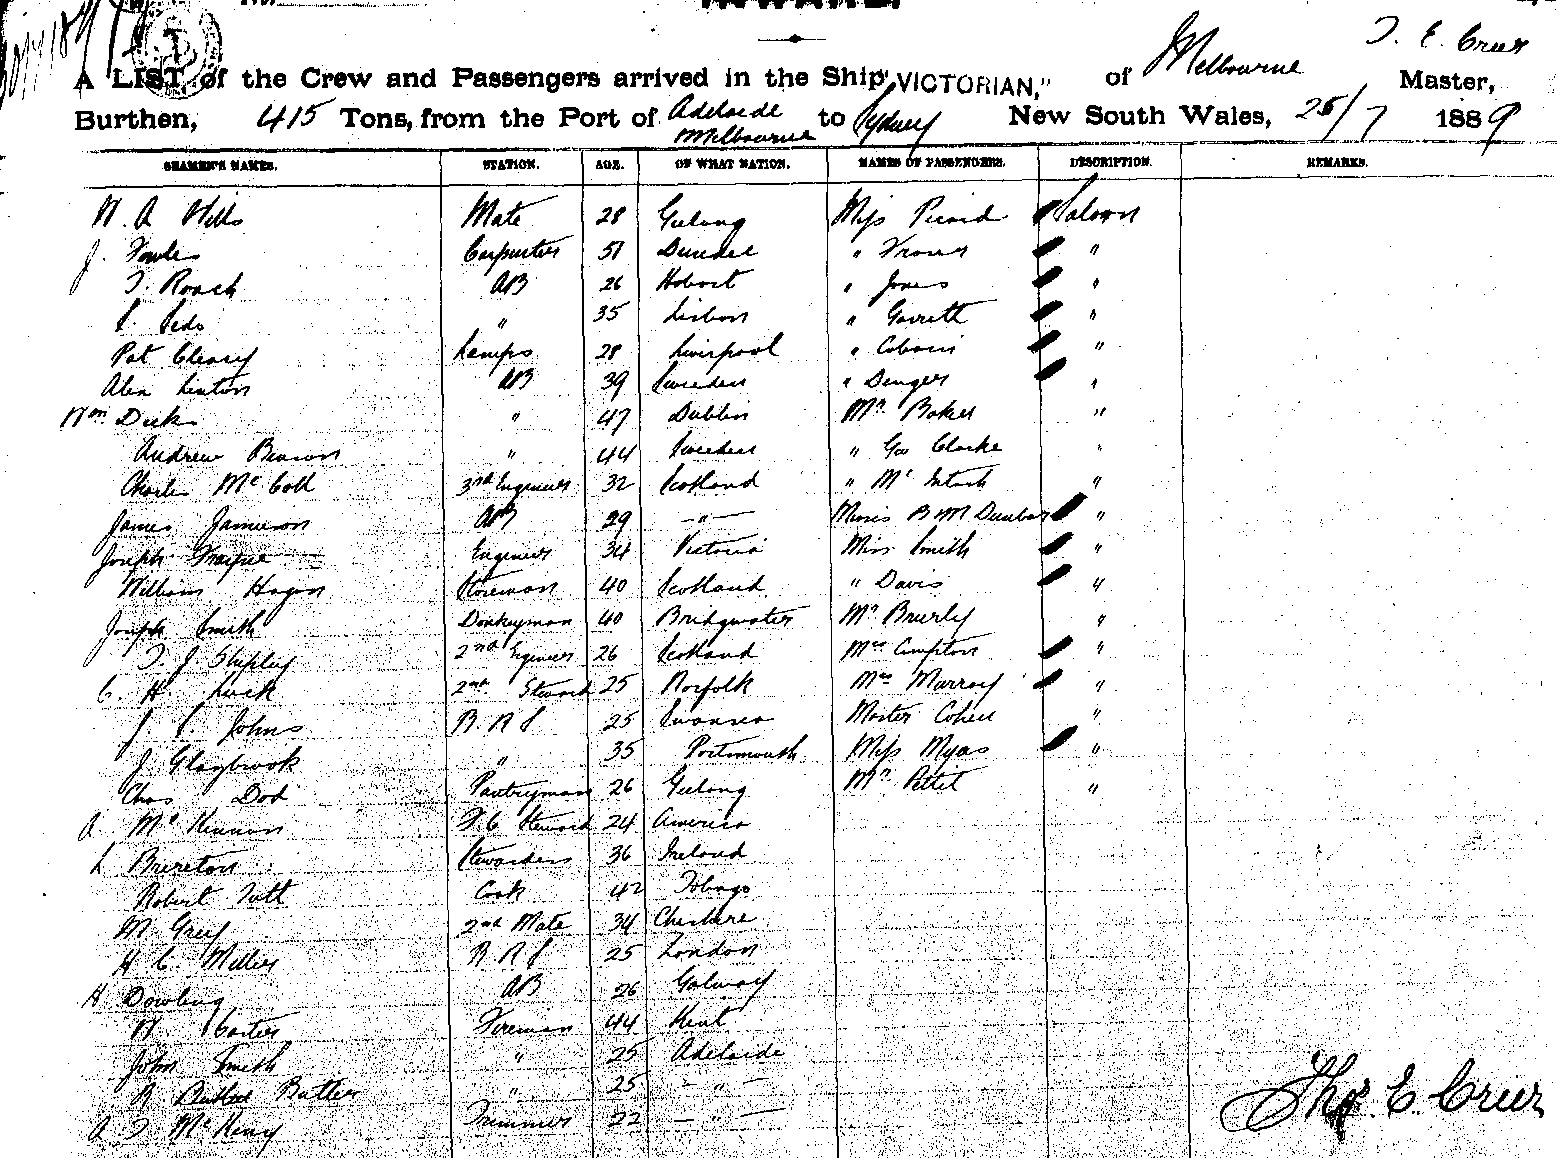 T. E. Creer
A LIST of the Crew and Passengers arrived in the Ship "VICTORIAN," of Melbourne Master,
Burthen, 415 Tons, from the Port of Adelaide Melbourne to Sydney New South Wales, 25/7 1889
SEAMEN'S NAMES. STATION. AGE. OF WHAT NATION. NAMES OF PASSENGERS. DESCRIPTION. REMARKS.
W. A Mate 28 Geelong Miss Picard Saloon
J. Fowles Carpenter 51 Dundee " "
T. Roach AB 26 Hobart " Jones "
" 35 Lisbon " Garrett "
Pat Cleary Lamps 28 Liverpool " "
Alex Linton AB 39 Sweden " "
Wm Dick " 47 Dublin Mr Baker "
Andrew " 44 Sweden " Geo Clarke "
Charles McColl 3rd Engineer 32 Scotland " "
James Jamieson AB 29 " Misses B & M Dunbar "
Joseph Engineer 34 Victoria Miss Smith "
William Hagan Storeman 40 Scotland " Davis "
Joseph Smith Donkeyman 40 Bridgwater Mr Brierly "
T. J Shipley 2nd Engineer 26 Scotland Mrs Compton "
C. H. Luck 2nd Steward 25 Norfolk Mrs Murray "
J. S. Johns B. R S 25 Swansea Master Cohen "
J Glaybrook " 35 Portsmouth Miss Myas "
Chas Dod Pantryman 26 Geelong Mr Pettet "
A. McKinnon F. C Steward 24 America
L Brereton Stewardess 36 Ireland
Robert Tutt Cook 42 Tobago
M Grey 2nd Mate 34 Cheshire
H C. Miller B R S 25 London
H Dowling AB 26 Galway
W Carter Fireman 44 Kent
John Smith " 25 Adelaide
R Butler " 25 "
A T McKeny Trimmer 22 "
Thos. E. Creer